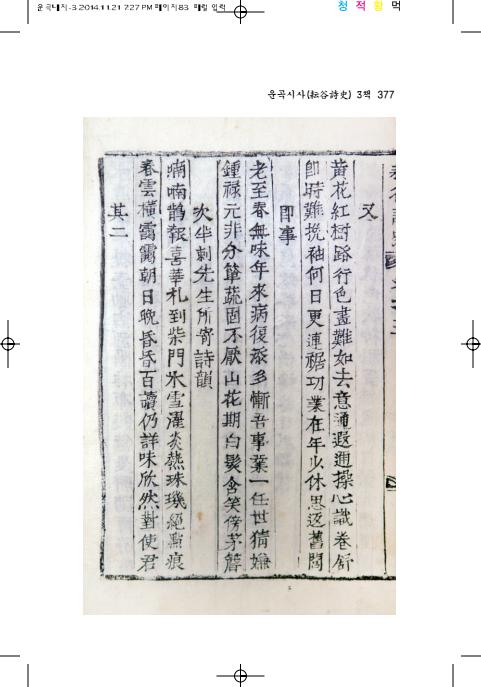 운곡대지-3 2014.11.21 7:27 PM 페이지83
청 적 황 먹
운곡시사(耘谷詩史) 3책 377
又
黃花紅樹路行色盡難如去意通遐邇操心識卷舒
卽時難挽袖何日更連裾功業在年少休思返舊閭
卽事
老至春無味年來病復添多慚吾事業一任世猜嫌
鍾祿元非分簞蔬固不厭山花期白髮含笑傍茅簷
次半刺先生所寄詩韻
喃喃鵲報喜華札到柴門氷雪濯炎熱珠璣絕點痕
春雲橫靄靄朝日晩昏昏百讀仍詳味欣然對使君
其二